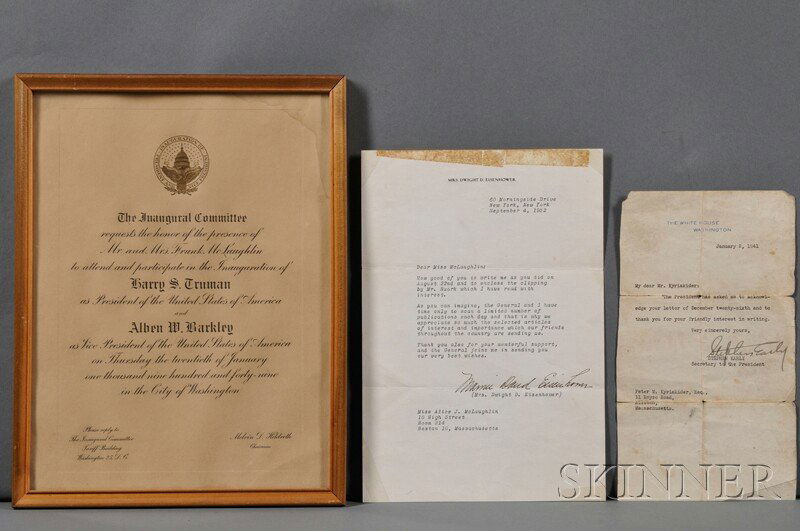 The Inaugural Committee
requests the honor of the presence of
Mr. and Mrs. Frank McLaughlin
to attend and participate in the Inauguration of
Harry S. Truman
as President of the United States of America
and
Alben W. Barkley
as Vice President of the United States of America
on Thursday the twentieth of January
one thousand nine hundred and forty-nine
in the City of Washington
Please reply to
The Inaugural Committee
Tariff Building
Washington 25, D.C.
Melvin D. Hildreth
Chairman
MRS. DWIGHT D. EISENHOWER
60 Morningside Drive
New York, New York
September 4, 1952
Dear Miss McLaughlin:
How good of you to write me as you did on
August 22nd and to enclose the clipping
by Mr. which I have read with
interest.
As you can imagine, the General and I have
time only to scan a limited number of
publications each day and that is why we
appreciate so much the selected articles
of interest and importance which our friends
throughout the country are sending us.
Thank you also for your wonderful support,
and the General joins me in sending you
our very best wishes.
Mamie Doud Eisenhower
(Mrs. Dwight D. Eisenhower)
Miss Alice J. McLaughlin
10 High Street
Room 914
Boston 10, Massachusetts
THE WHITE HOUSE
WASHINGTON
January 2, 1941
My dear Mr. Kyriakider:
The President has asked me to acknowl-
edge your letter of December twenty-sixth and to
thank you for your friendly interest in writing.
Very sincerely yours,
Stephen Early
STEPHEN EARLY
Secretary to the President
Peter M. Kyriakider, Esq.,
11 Road,
Massachusetts.
SKINNER